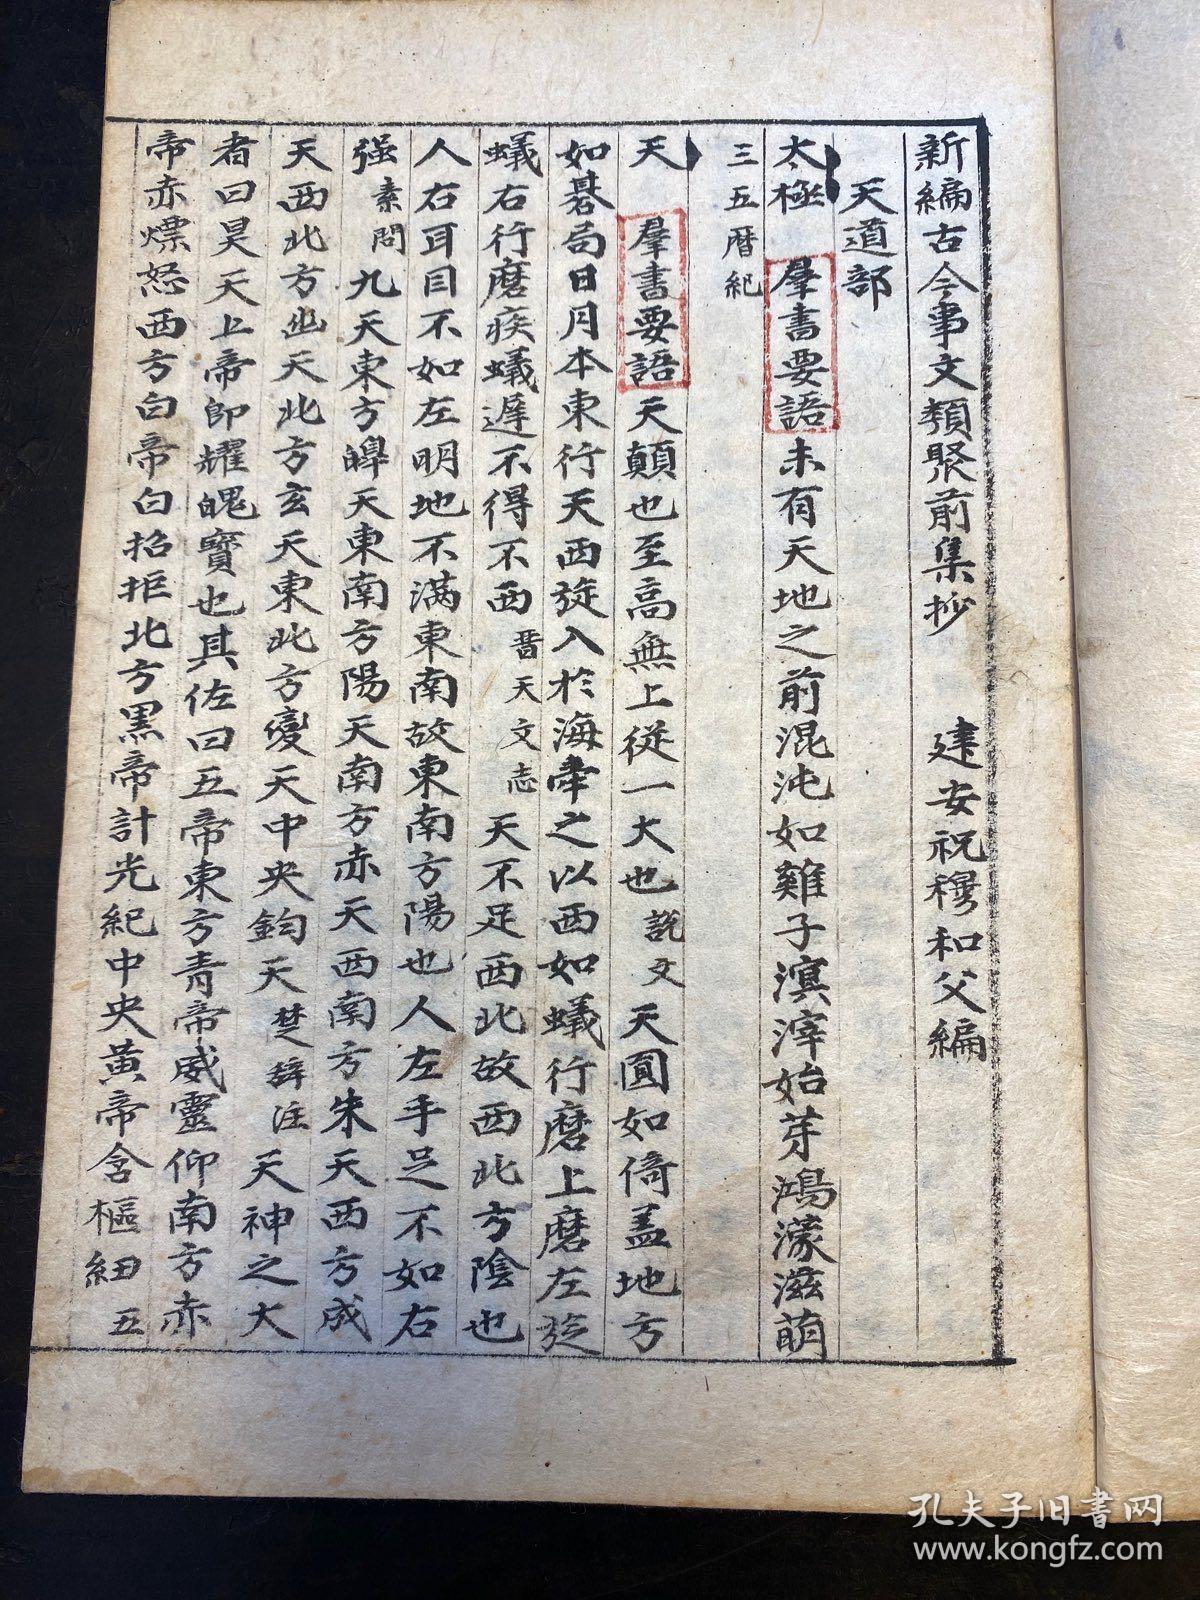 新編古今事文類聚前集抄 建安祝穆和父編
天道部
太極 羣書要語 未有天地之前混沌如雞子溟滓始芽鴻濛滋萌
三五曆紀
天 羣書要語 天顛也至高無上從一大也 說文 天圓如倚盖地方
如碁局日月本東行天西旋入於海牽之以西如蟻行磨上磨左旋
蟻右行磨疾蟻遲不得不西 晋天文志 天不足西北故西北方陰也
人右耳目不如左明地不滿東南故東南方陽也人左手足不如右
强 素問 九天東方皞天東南方陽天南方赤天西南方朱天西方成
天西北方幽天北方玄天東北方變天中央鈞天 楚辞注 天神之大
者曰昊天上帝即耀魄寶也其佐曰五帝東方青帝威靈仰南方赤
帝赤熛怒西方白帝白招拒北方黒帝計光紀中央黄帝含樞紐 五
孔夫子旧书网
www.kongfz.com